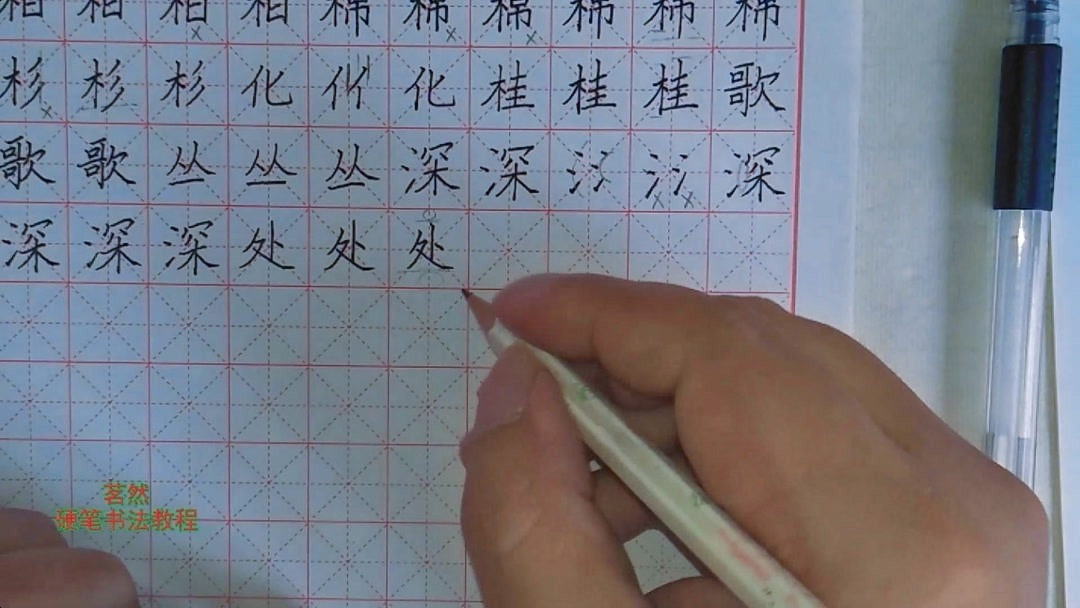 柏 柏 柏 柏 棉 棉 棉 棉 棉 棉
杉 杉 杉 化 化 桂 桂 桂 歌
歌 歌 丛 丛 丛 深 深 深
深 深 深 处 处 处
茗然
硬笔书法教程